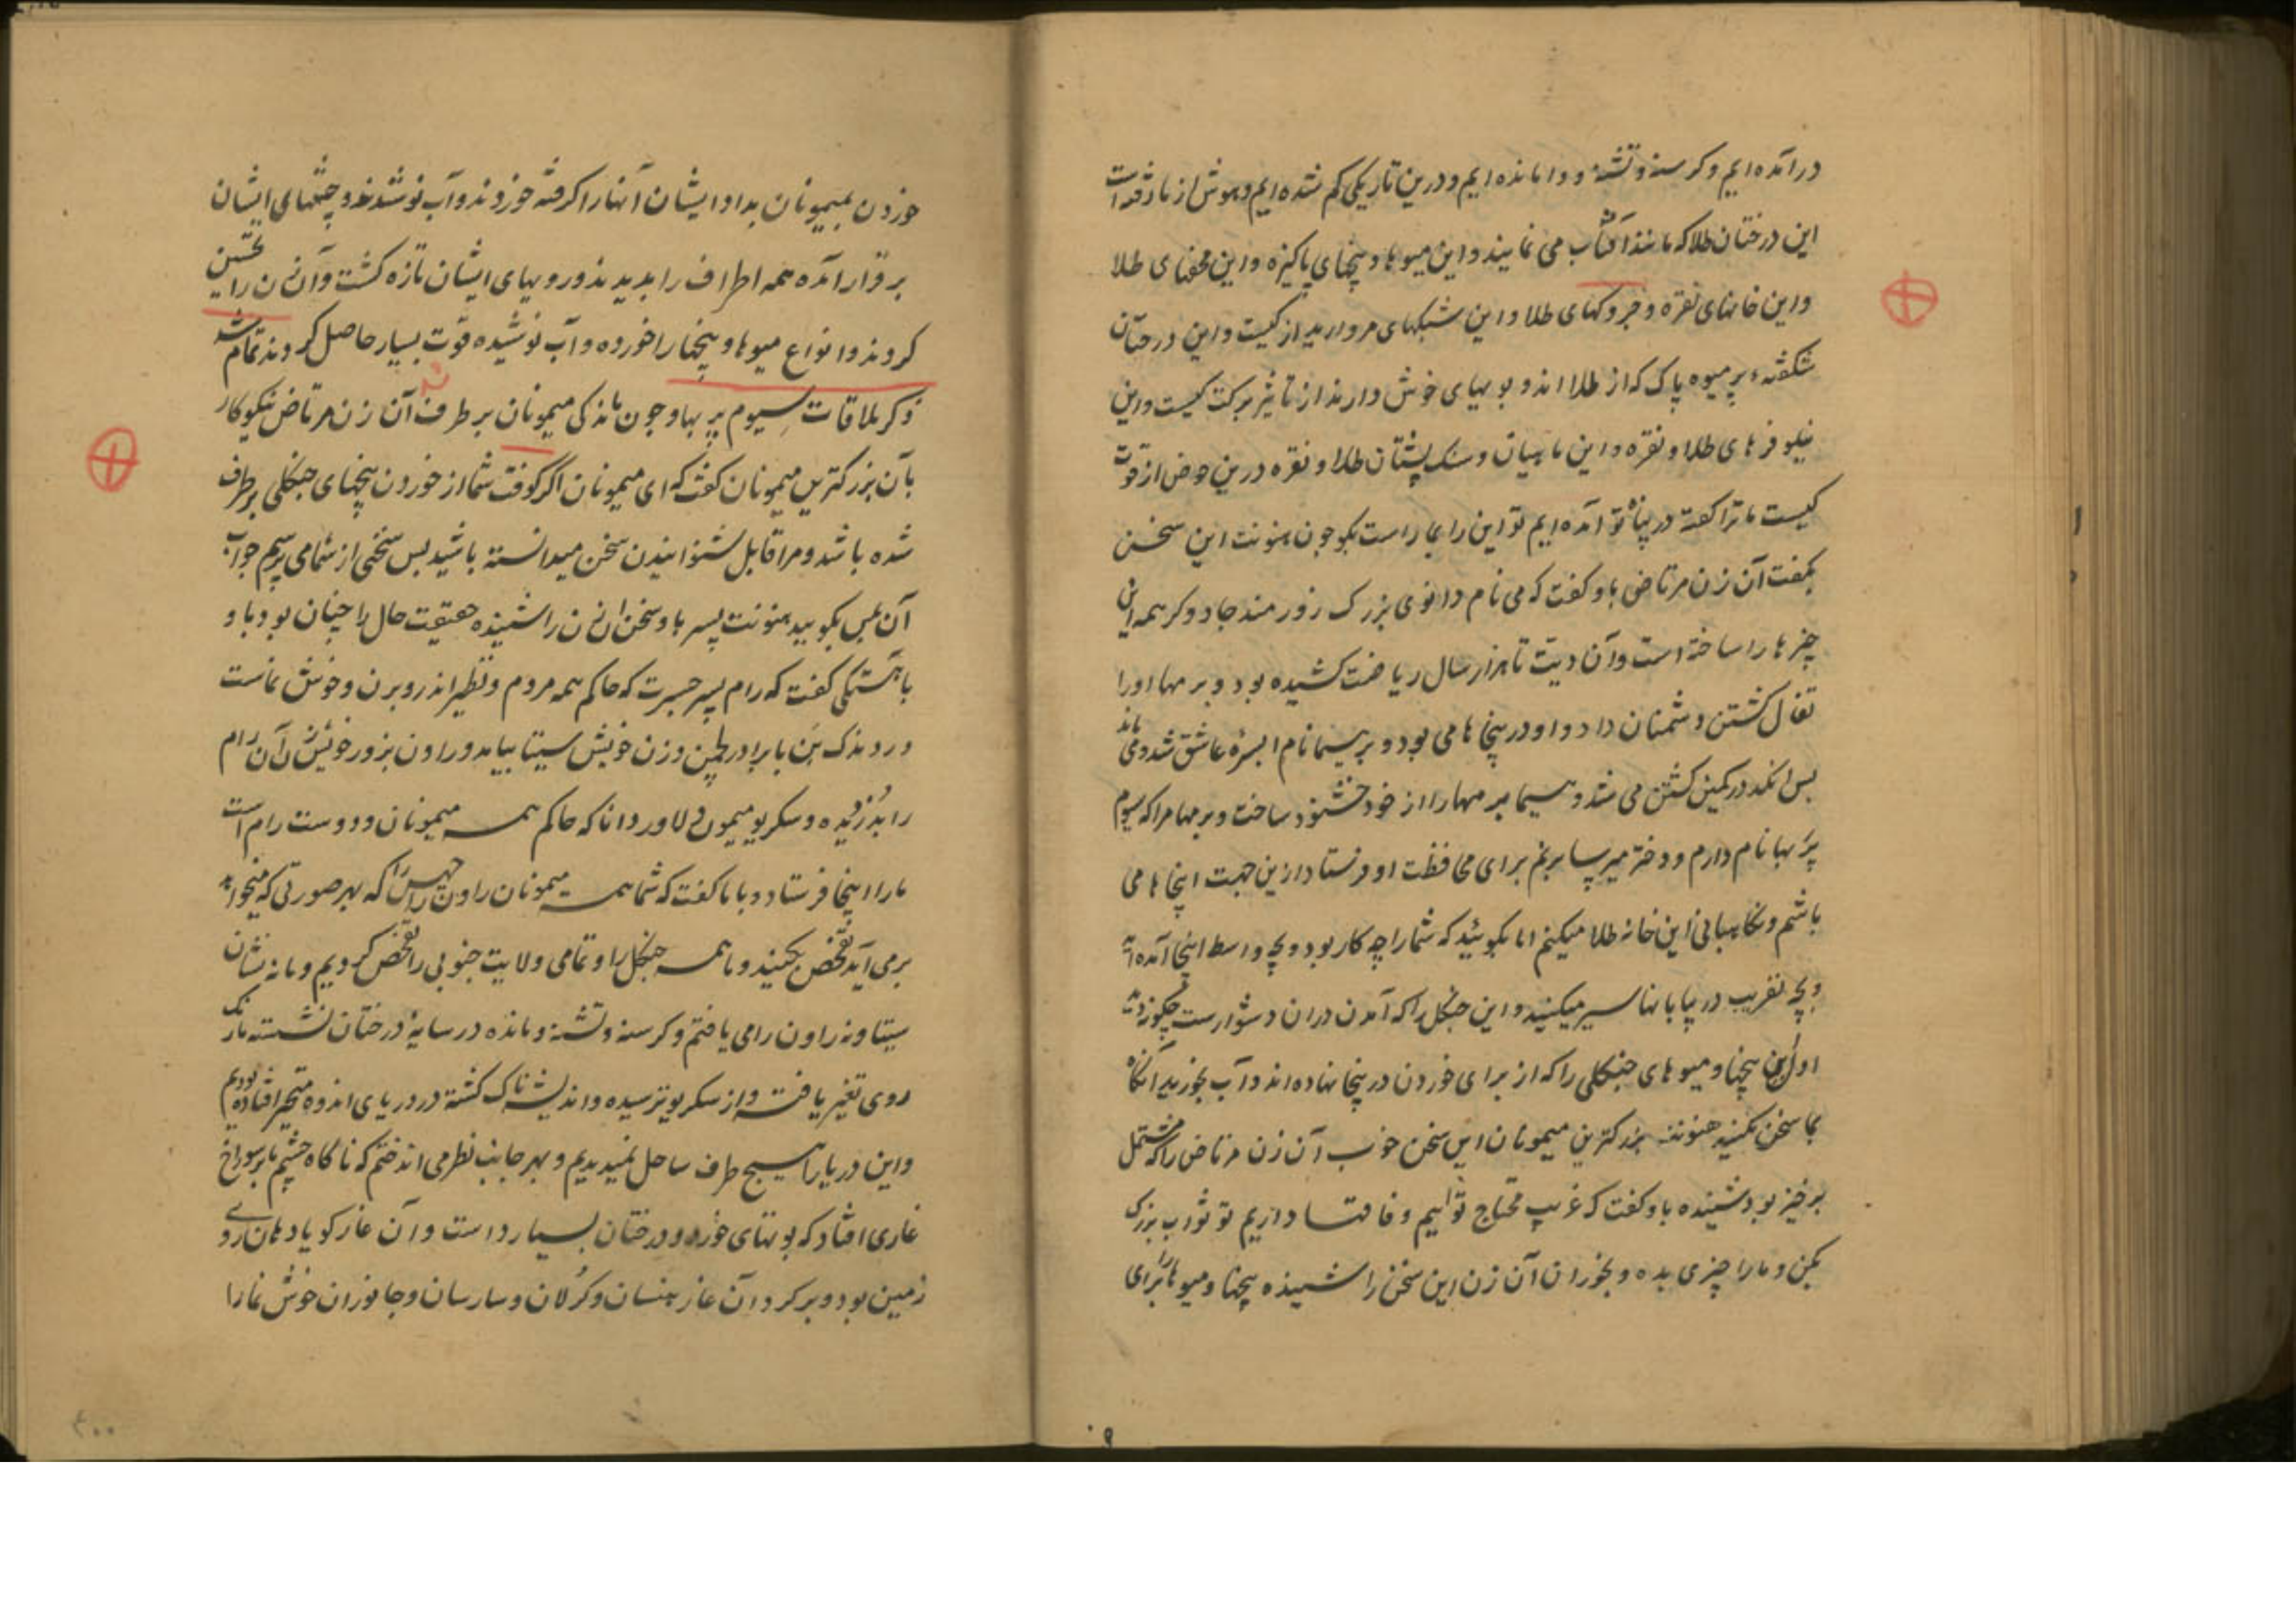 درآمده ایم و کرسنه و تشنه و وامانده ایم و درین تاریکی کم شده ایم و هوش از ما رفته است
این درختان طلا که مانند آفتاب می نمایند و این میوها و بیخهای پاکیزه و این محفهای طلا
و این خانهای نقره و جروکهای طلا و این شبکهای مروارید از کیست و این درختان
شکفته پر میوه پاک که از طلا اند و بویهای خوش دارند از تاثیر برکت کیست و این
نیلوفرهای طلا و نقره و این ماهیان و سنک پشتان طلا و نقره درین حوض از قوت
کیست ما ترا کفته در پناه تو آمده ایم تو این را بما راست بکو چون هنونت این سخن
بکفت آن زن مرتاض باو کفت که می نام دانوی بزرک زورمند جادوکر همه این
چیزها را ساخته است و آن دیت تا هزار سال ریاضت کشیده بود و برمها او را
تفال کشتن دشمنان داد و او درینجا ها می بود و بر هیما نام ابسره عاشق شد و می ماند
بس اندر در کمین کشتن می شد و هیما برمها را از خود خشنود ساخت و برمها مرا که سیوم
پربها نام دارم و دختر میرسابرنم برای محافظت او فرستاد ازین جهت اینجاها می
باشم و نکاهبانی این خانه طلا میکنم اما بکوئید که شما را چه کار بود و بچه واسطه اینجا آمده اید
و بچه تقریب در بیابانها سیر میکنید و این جنکل را که آمدن در ان دشوارست چکونه دیدید
اول این بیخها و میوهای جنکلی را که از برای خوردن درینجا نهاده اند و آب بخورید آنکاه
بما سخن بکنید هنونت بزرکترین میمونان این سخن خوب آن زن مرتاض را که مشتمل
بر خیر بود شنیده باو کفت که غریب محتاج توایم و فاقتها داریم تو ثواب بزرک
بکن و ما را چیزی بده و بخوران آن زن این سخن را شنیده بیخها و میوها را برای
خوردن بمیمونان بداد ایشان آنها را کرفته خوردند و آب نوشیدند و چشمهای ایشان
برقرار آمده همه اطراف را بدیدند و رویهای ایشان تازه کشت و آن زن را تحسین
کردند و انواع میوها و بیخها را خورده و آب نوشیده قوت بسیار حاصل کردند تمام شد
ذکر ملاقات سیوم پربها و چون ماندکی میمونان بر طرف شد آن زن مرتاض نیکوکار
بآن بزرکترین میمونان کفت که ای میمونان اکر کوفت شما از خوردن بیخهای جنکلی بر طرف
شده باشد و مرا قابل شنوانیدن سخن میدانسته باشید بس سخنی از شما می پرسم جواب
آن بمن بکویید هنونت پسر باد سخن آن زن را شنیده حقیقت حال را چنان بود باو
باهستکی کفت که رام پسر جسرت که حاکم همه مردم و نظیر اندر و برن و خوش نماست
در دندک بن با برادر لچمن و زن خویش سیتا بیامد و راون بزور خویش زن آن رام
را بدزدیده و سکریو میمون دلاور دانا که حاکم همه میمونان و دوست رام است
ما را اینجا فرستاد و با ما کفت که شما همه میمونان راون راچهس را که بهر صورتی که میخواهد
بر می آید تفحص بکنید و ما همه جنکل را و تمامی ولایت جنوبی را تفحص کردیم و ما نه نشان
سیتا و نه راون را می یافتم و کرسنه و تشنه و مانده در سایه درختان نشسته ما رنک
روی تغیر یافته و از سکریو ترسیده و اندیشه ناک کشته در دریای اندوه متحیر افتاده بودیم
و این دریا را هیچ طرف ساحل نمیدیدیم و بهر جانب نظر می انداختم که ناکاه چشم ما بر سوراخ
غاری افتاد که بوتهای خورد و درختان بسیار داست و آن غار کویا دهان روی
زمین بود و بر کرد آن غار هنسان و کرلان و سارسان و جانوران خوش نما را
۹
۴۰۰